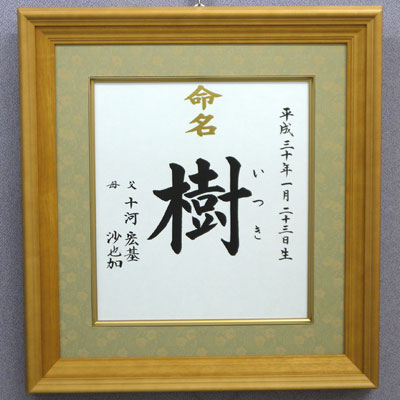 命名
平成三十年一月二十三日生
いつき
樹
父 十河 宏基
母 沙也加